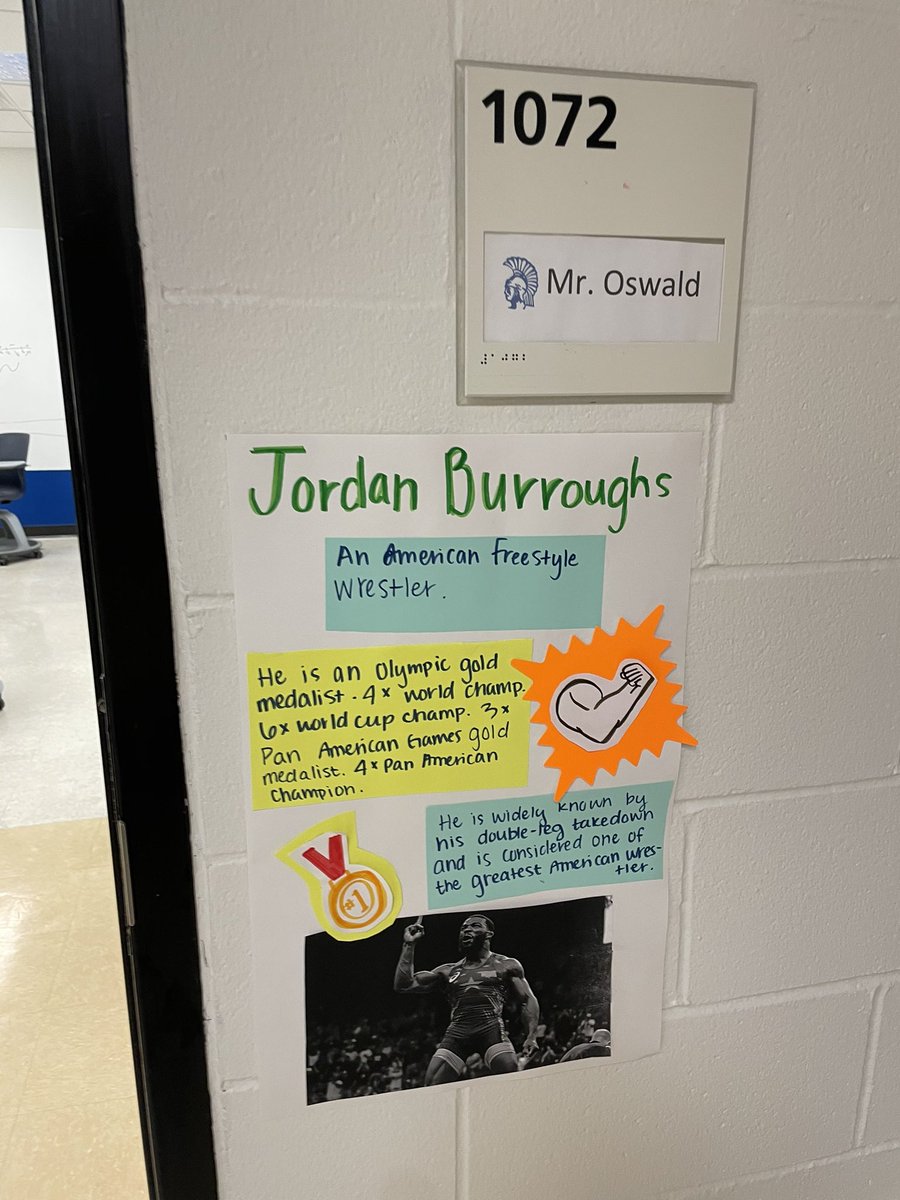 1072
Mr. Oswald
Jordan Burroughs
An American freestyle
wrestler.
He is an Olympic gold
medalist. 4x world champ.
6x world cup champ. 3x
Pan American Games gold
medalist. 4x Pan American
Champion.
He is widely known by
his double-leg takedown
and is considered one of
the greatest American wres-
tler.
#1